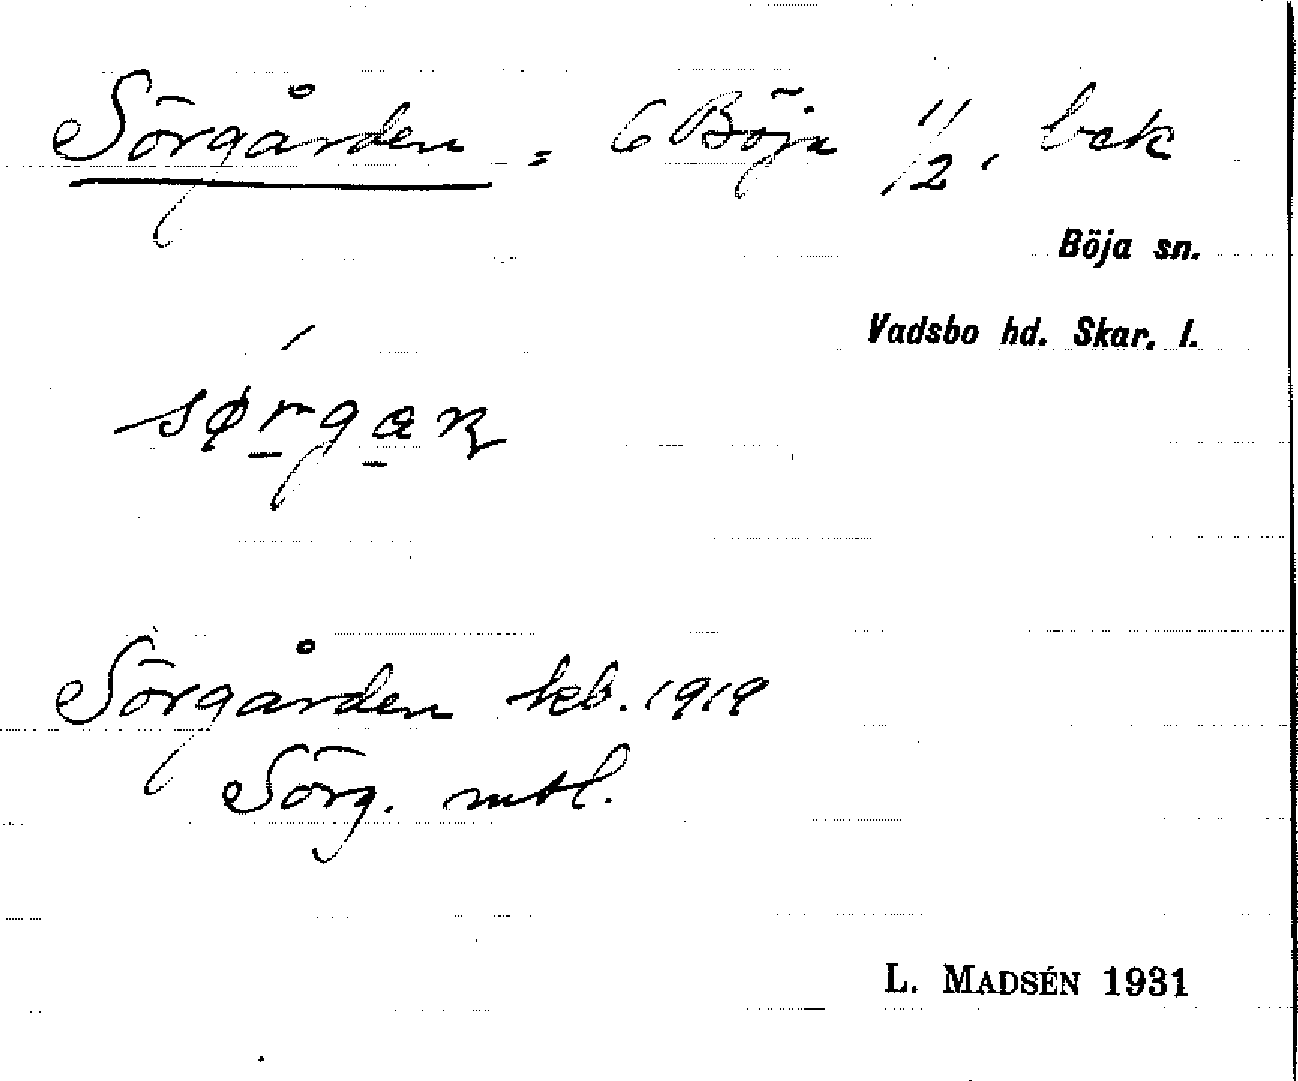 Sörgården = 6 Böja 1/2, bek
Böja sn.
Vadsbo hd. Skar. l.
Sörgården kb. 1919
Sörg. mtl.
L. MADSÉN 1931